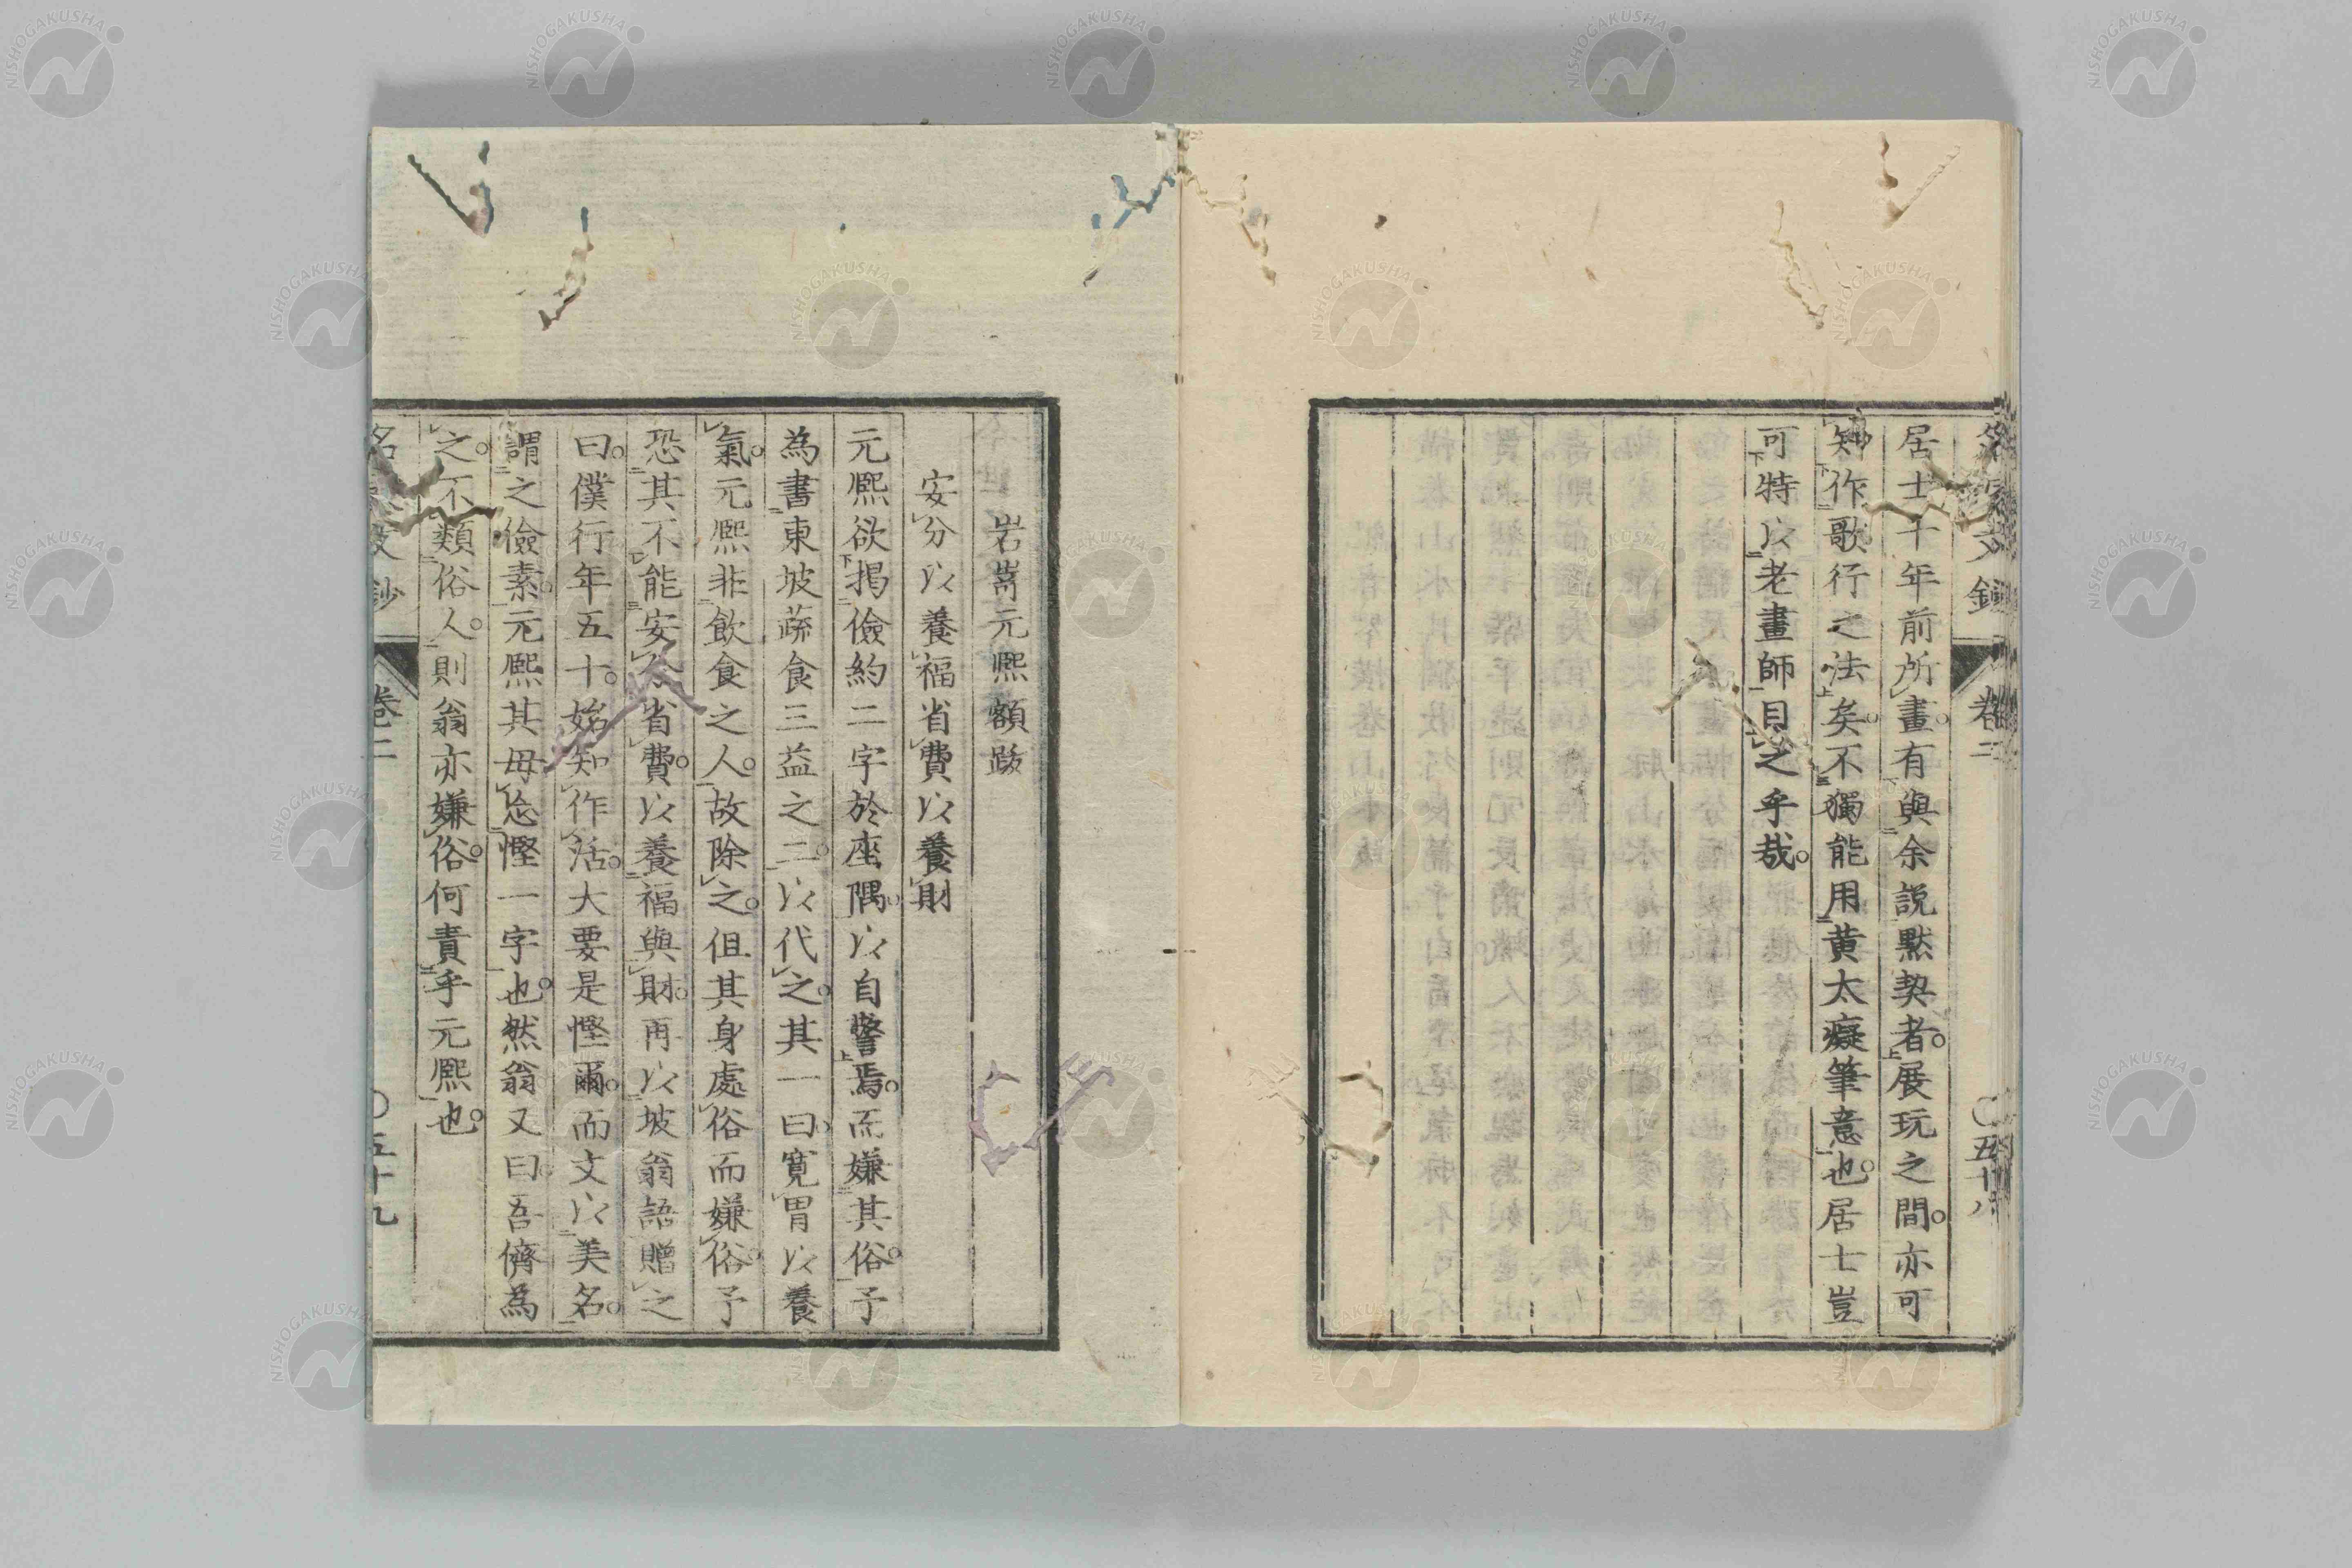 名家文鈔 卷二 〇五十八
居士千年前所畫。有與余説默契者。展玩之間。亦可
知作歌行之法矣。不獨能用黄太癡筆意也。居士豈
可特以老畫師目之乎哉。
岩嵜元熈額跋
安分以養福省費以養財
元熈欲掲儉約二字於座隅。以自警焉。而嫌其俗。予
為書東坡蔬食三益之二。以代之。其一曰。寛胃以養
氣。元熈非飲食之人。故除之。但其身處俗而嫌俗。予
恐其不能安分省費。以養福與財。再以坡翁語贈之
曰。僕行年五十。始知作活。大要是慳爾。而文以美名。
謂之儉素。元熈其毋忩慳一字也。然翁又曰。吾儕為
之。不類俗人。則翁亦嫌俗。何責乎元熈也。
名家文鈔 卷二 〇五十九
NISHOGAKUSHA